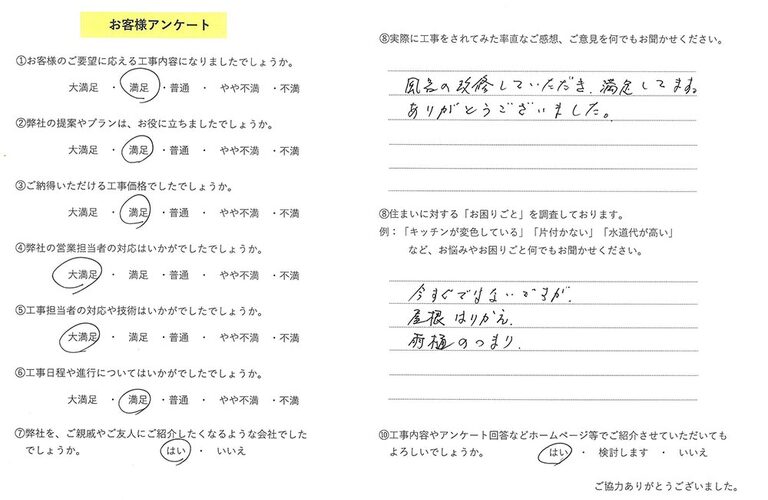 お客様アンケート
①お客様のご要望に応える工事内容になりましたでしょうか。
大満足 ・ 満足 ・普通 ・ やや不満 ・不満
②弊社の提案やプランは、お役に立ちましたでしょうか。
大満足 ・ 満足 ・普通 ・ やや不満 ・不満
③ご納得いただける工事価格でしたでしょうか。
大満足 ・ 満足 ・普通 ・ やや不満 ・不満
④弊社の営業担当者の対応はいかがでしたでしょうか。
大満足 ・ 満足 ・普通 ・ やや不満 ・不満
⑤工事担当者の対応や技術はいかがでしたでしょうか。
大満足 ・ 満足 ・普通 ・ やや不満 ・不満
⑥工事日程や進行についてはいかがでしたでしょうか。
大満足 ・ 満足 ・普通 ・ やや不満 ・不満
⑦弊社を、ご親戚やご友人にご紹介したくなるような会社でした
でしょうか。 はい ・ いいえ
⑧実際に工事をされてみた率直なご感想、ご意見を何でもお聞かせください。
風呂の改修していただき、満足してます。
ありがとうございました。
⑧住まいに対する「お困りごと」を調査しております。
例：「キッチンが変色している」「片付かない」「水道代が高い」
など、お悩みやお困りごと何でもお聞かせください。
今すぐではないですが、
屋根はりかえ、
雨樋のつまり、
⑩工事内容やアンケート回答などホームページ等でご紹介させていただいても
よろしいでしょうか。 はい ・ 検討します ・ いいえ
ご協力ありがとうございました。